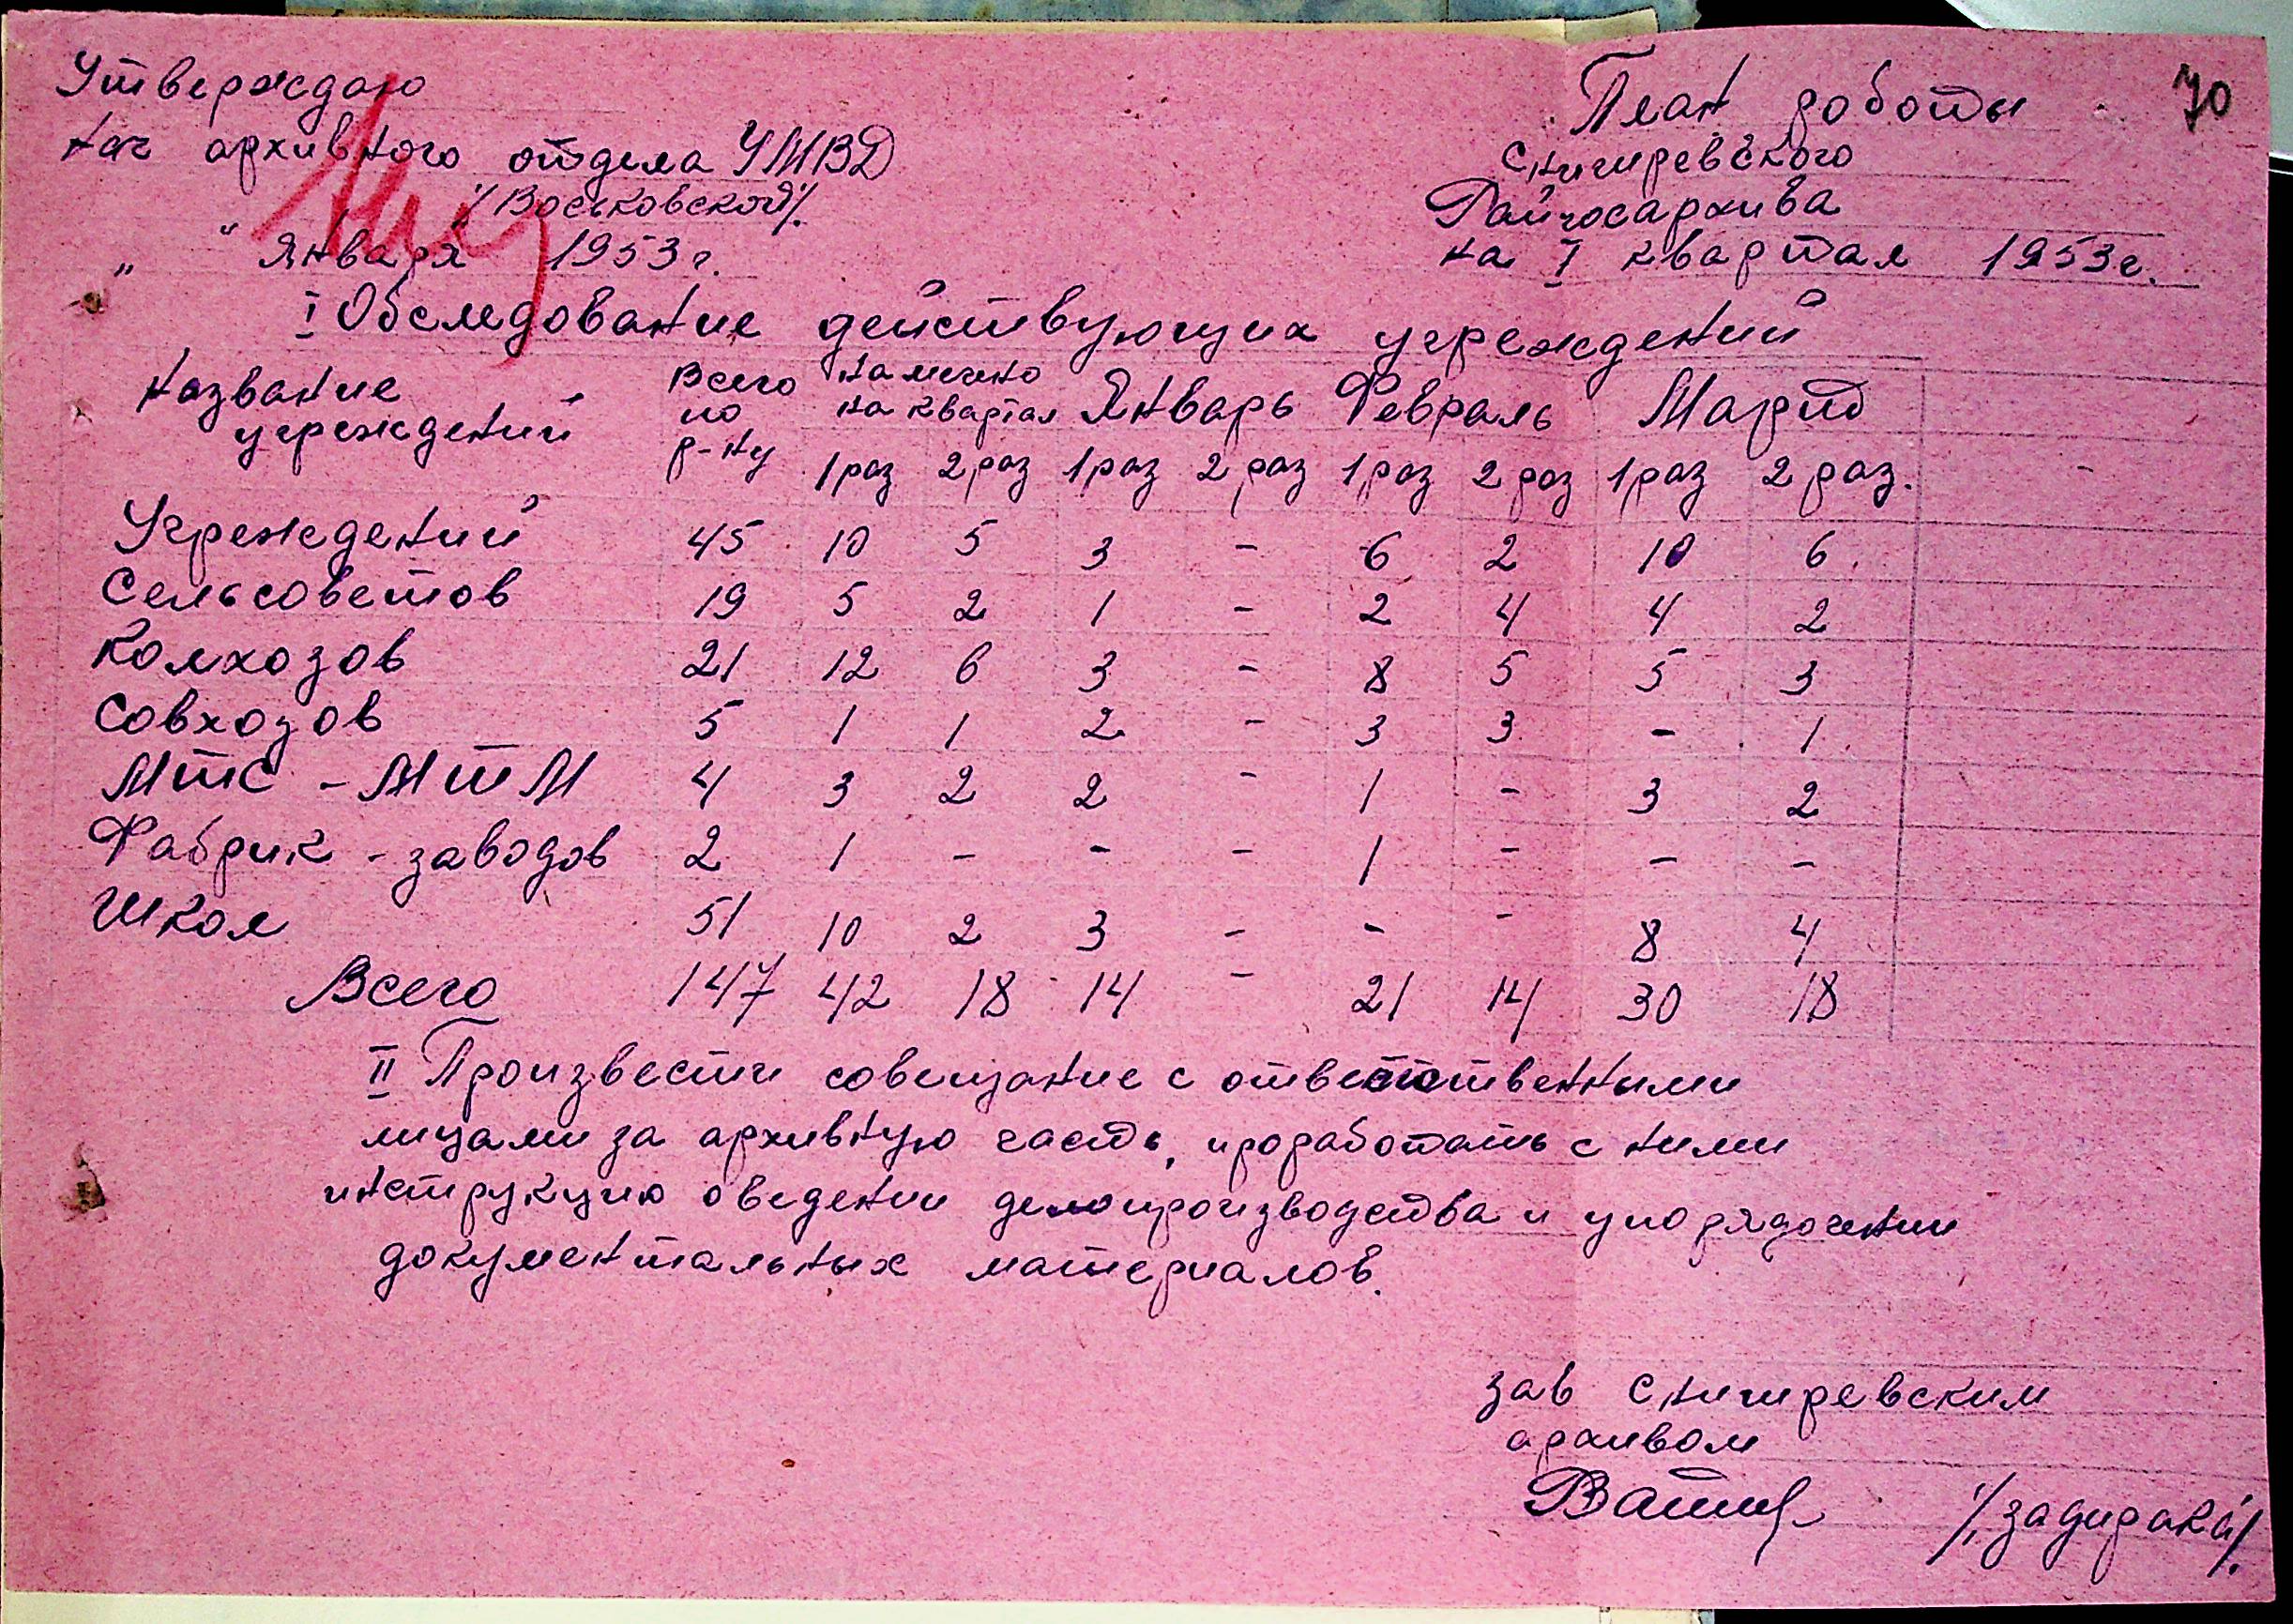 Утверждаю
нач архивного отдела УМВД
/Воськовской/.
" " Января 1953 г.
70
План работы
Снигиревского
Райгосархива
на I квартал 1953 г.
I Обследование действующих учреждений
Название учреждений Всего по р-ну Намечено на квартал Январь Февраль Март
1 раз 2 раз 1 раз 2 раз 1 раз 2 раз 1 раз 2 раз.
Учреждений 45 10 5 3 - 6 2 10 6
Сельсоветов 19 5 2 1 - 2 4 4 2
Колхозов 21 12 6 3 - 8 5 5 3
Совхозов 5 1 1 2 - 3 3 - 1
МТС - МТМ 4 3 2 2 - 1 - 3 2
Фабрик - заводов 2 1 - - - 1 - - -
Школ 51 10 2 3 - - - 8 4
Всего 147 42 18 14 - 21 14 30 18
II Произвести совещание с ответственными
лицами за архивную часть, проработать с ними
инструкцию о ведении делопроизводства и упорядочении
документальных материалов.
зав Снигиревским
архивом
/Задирака/.